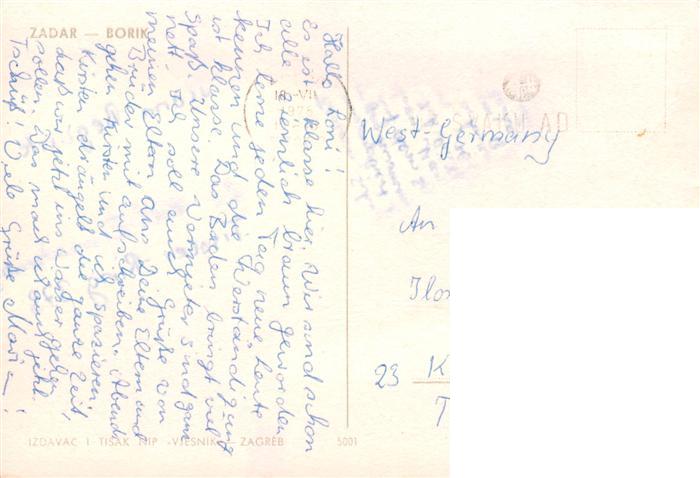 ZADAR — BORIK
Hallo Loni!
Es ist klasse hier. Wir sind schon
alle ziemlich braun geworden.
Ich lerne jeden Tag neue Leute
kennen und die Verständigung
ist klasse. Das Baden bringt viel
Spaß. Unsere Vermieter sind ganz
nett. Ich soll auch Grüße von
meinen Eltern ans Deine Eltern und
Bruder mit aufschreiben. Abends
gehen Kirsten und ich spazieren.
Kirsten drängelt die ganze Zeit,
daß wir jetzt ins Wasser gehen
sollen. Das mach ich auch jetzt.
Tschüß! Viele Grüße
IZDAVAČ I TISAK NIP »VJESNIK« — ZAGREB
5001
18-VII
1975
West-Germany
An
23 K
T